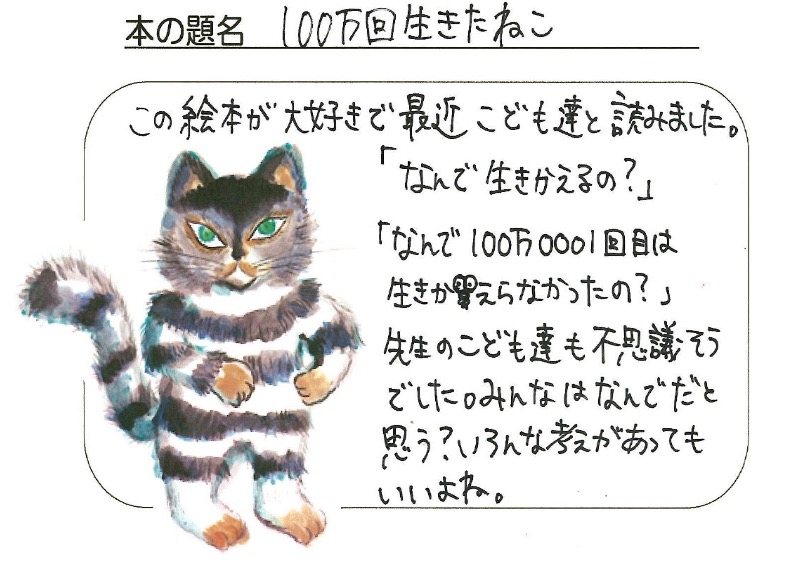 本の題名 100万回生きたねこ
この絵本が大好きで最近こども達と読みました。
「なんで生きかえるの?」
「なんで100万0001回目は
生きかえらなかったの?」
先生のこども達も不思議そう
でした。みんなはなんでだと
思う?いろんな考えがあっても
いいよね。